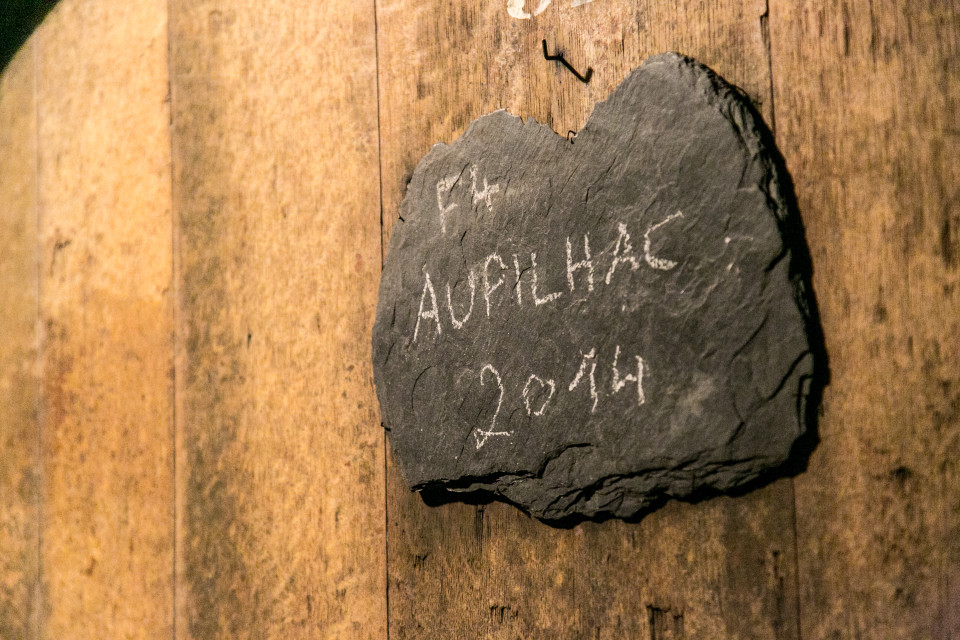 F4
AUPILHAC
2014